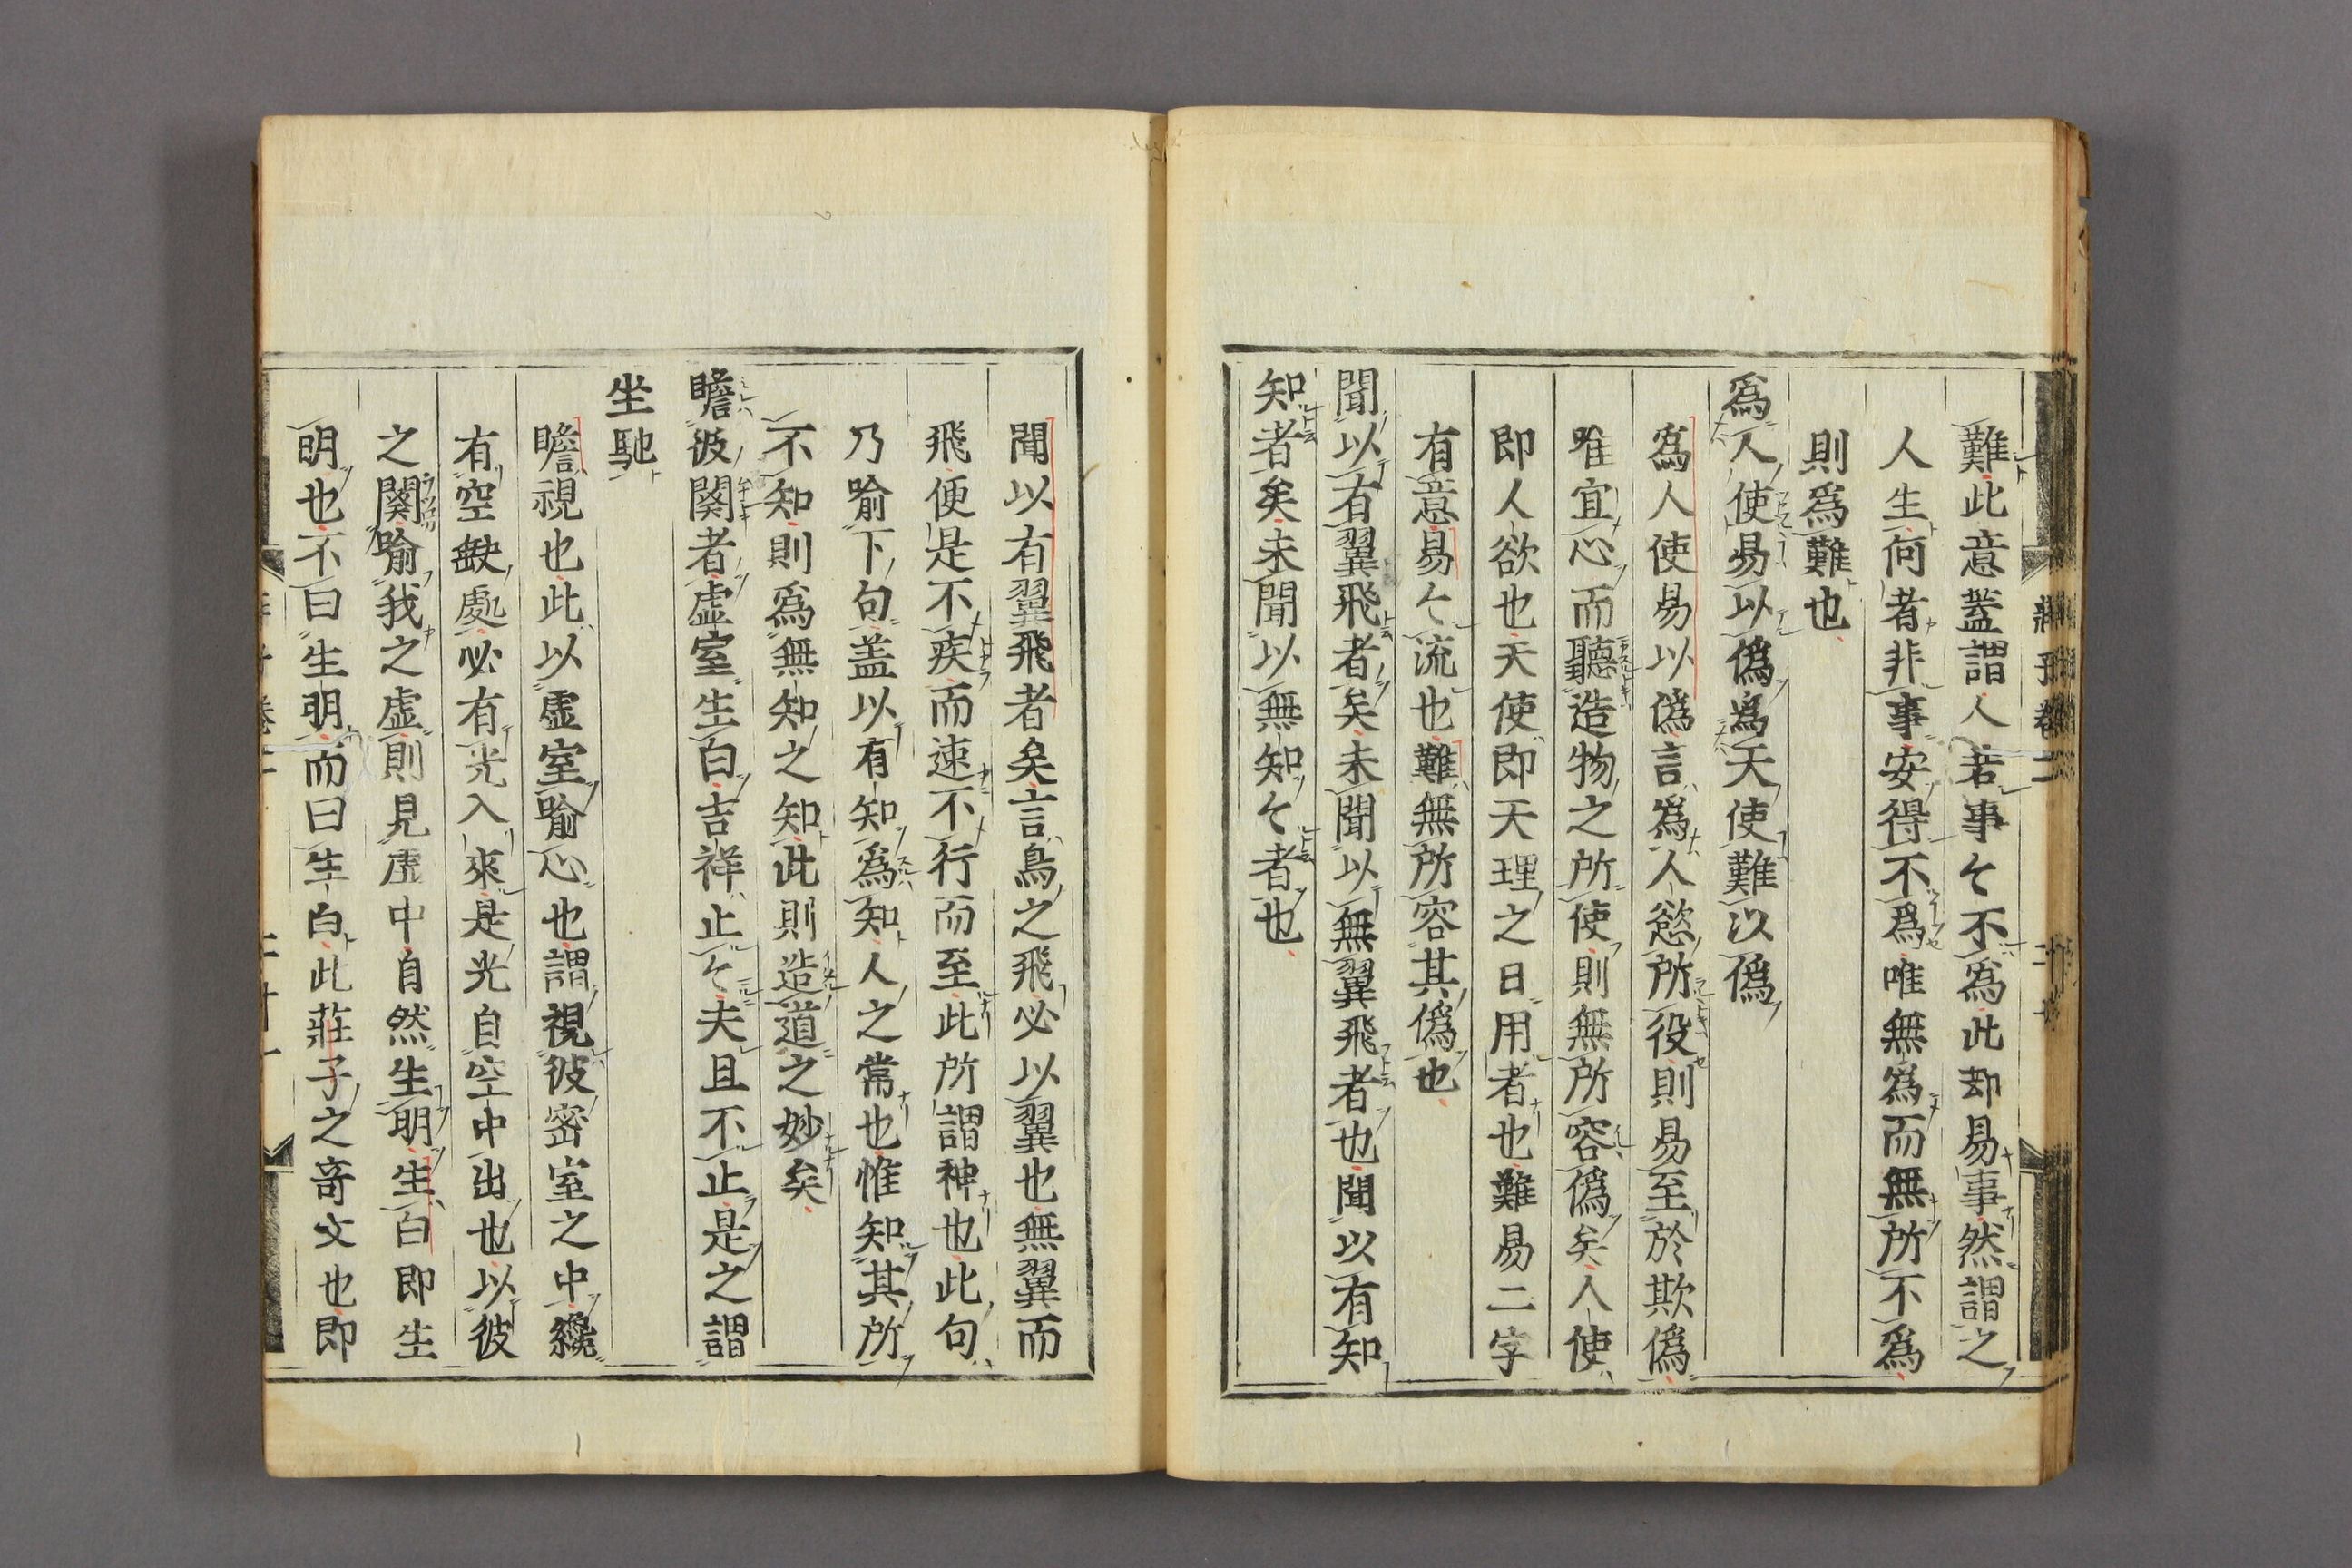 難此意蓋謂人若事々不爲此却易事然謂之
人生何者非事安得不爲唯無爲而無所不爲
則爲難也
爲人使易以僞爲天使難以僞
爲人使易以僞言爲人慾所役則易至於欺僞
唯宜心而聽造物之所使則無所容僞矣人使
即人欲也天使即天理之日用者也難易二字
有意易々流也難無所容其僞也
聞以有翼飛者矣未聞以無翼飛者也聞以有知
知者矣未聞以無知々者也
聞以有翼飛者矣言鳥之飛必以翼也無翼而
飛便是不疾而速不行而至此所謂神也此句
乃喻下句盖以有知爲知人之常也惟知其所
不知則爲無知之知此則造道之妙矣
瞻彼闋者虛室生白吉祥止々夫且不止是之謂
坐馳
瞻視也此以虛室喻心也謂視彼密室之中纔
有空缺處必有光入來是光自空中出也以彼
之闋喻我之虛則見虛中自然生明生白即生
明也不曰生明而曰生白此莊子之奇文也即